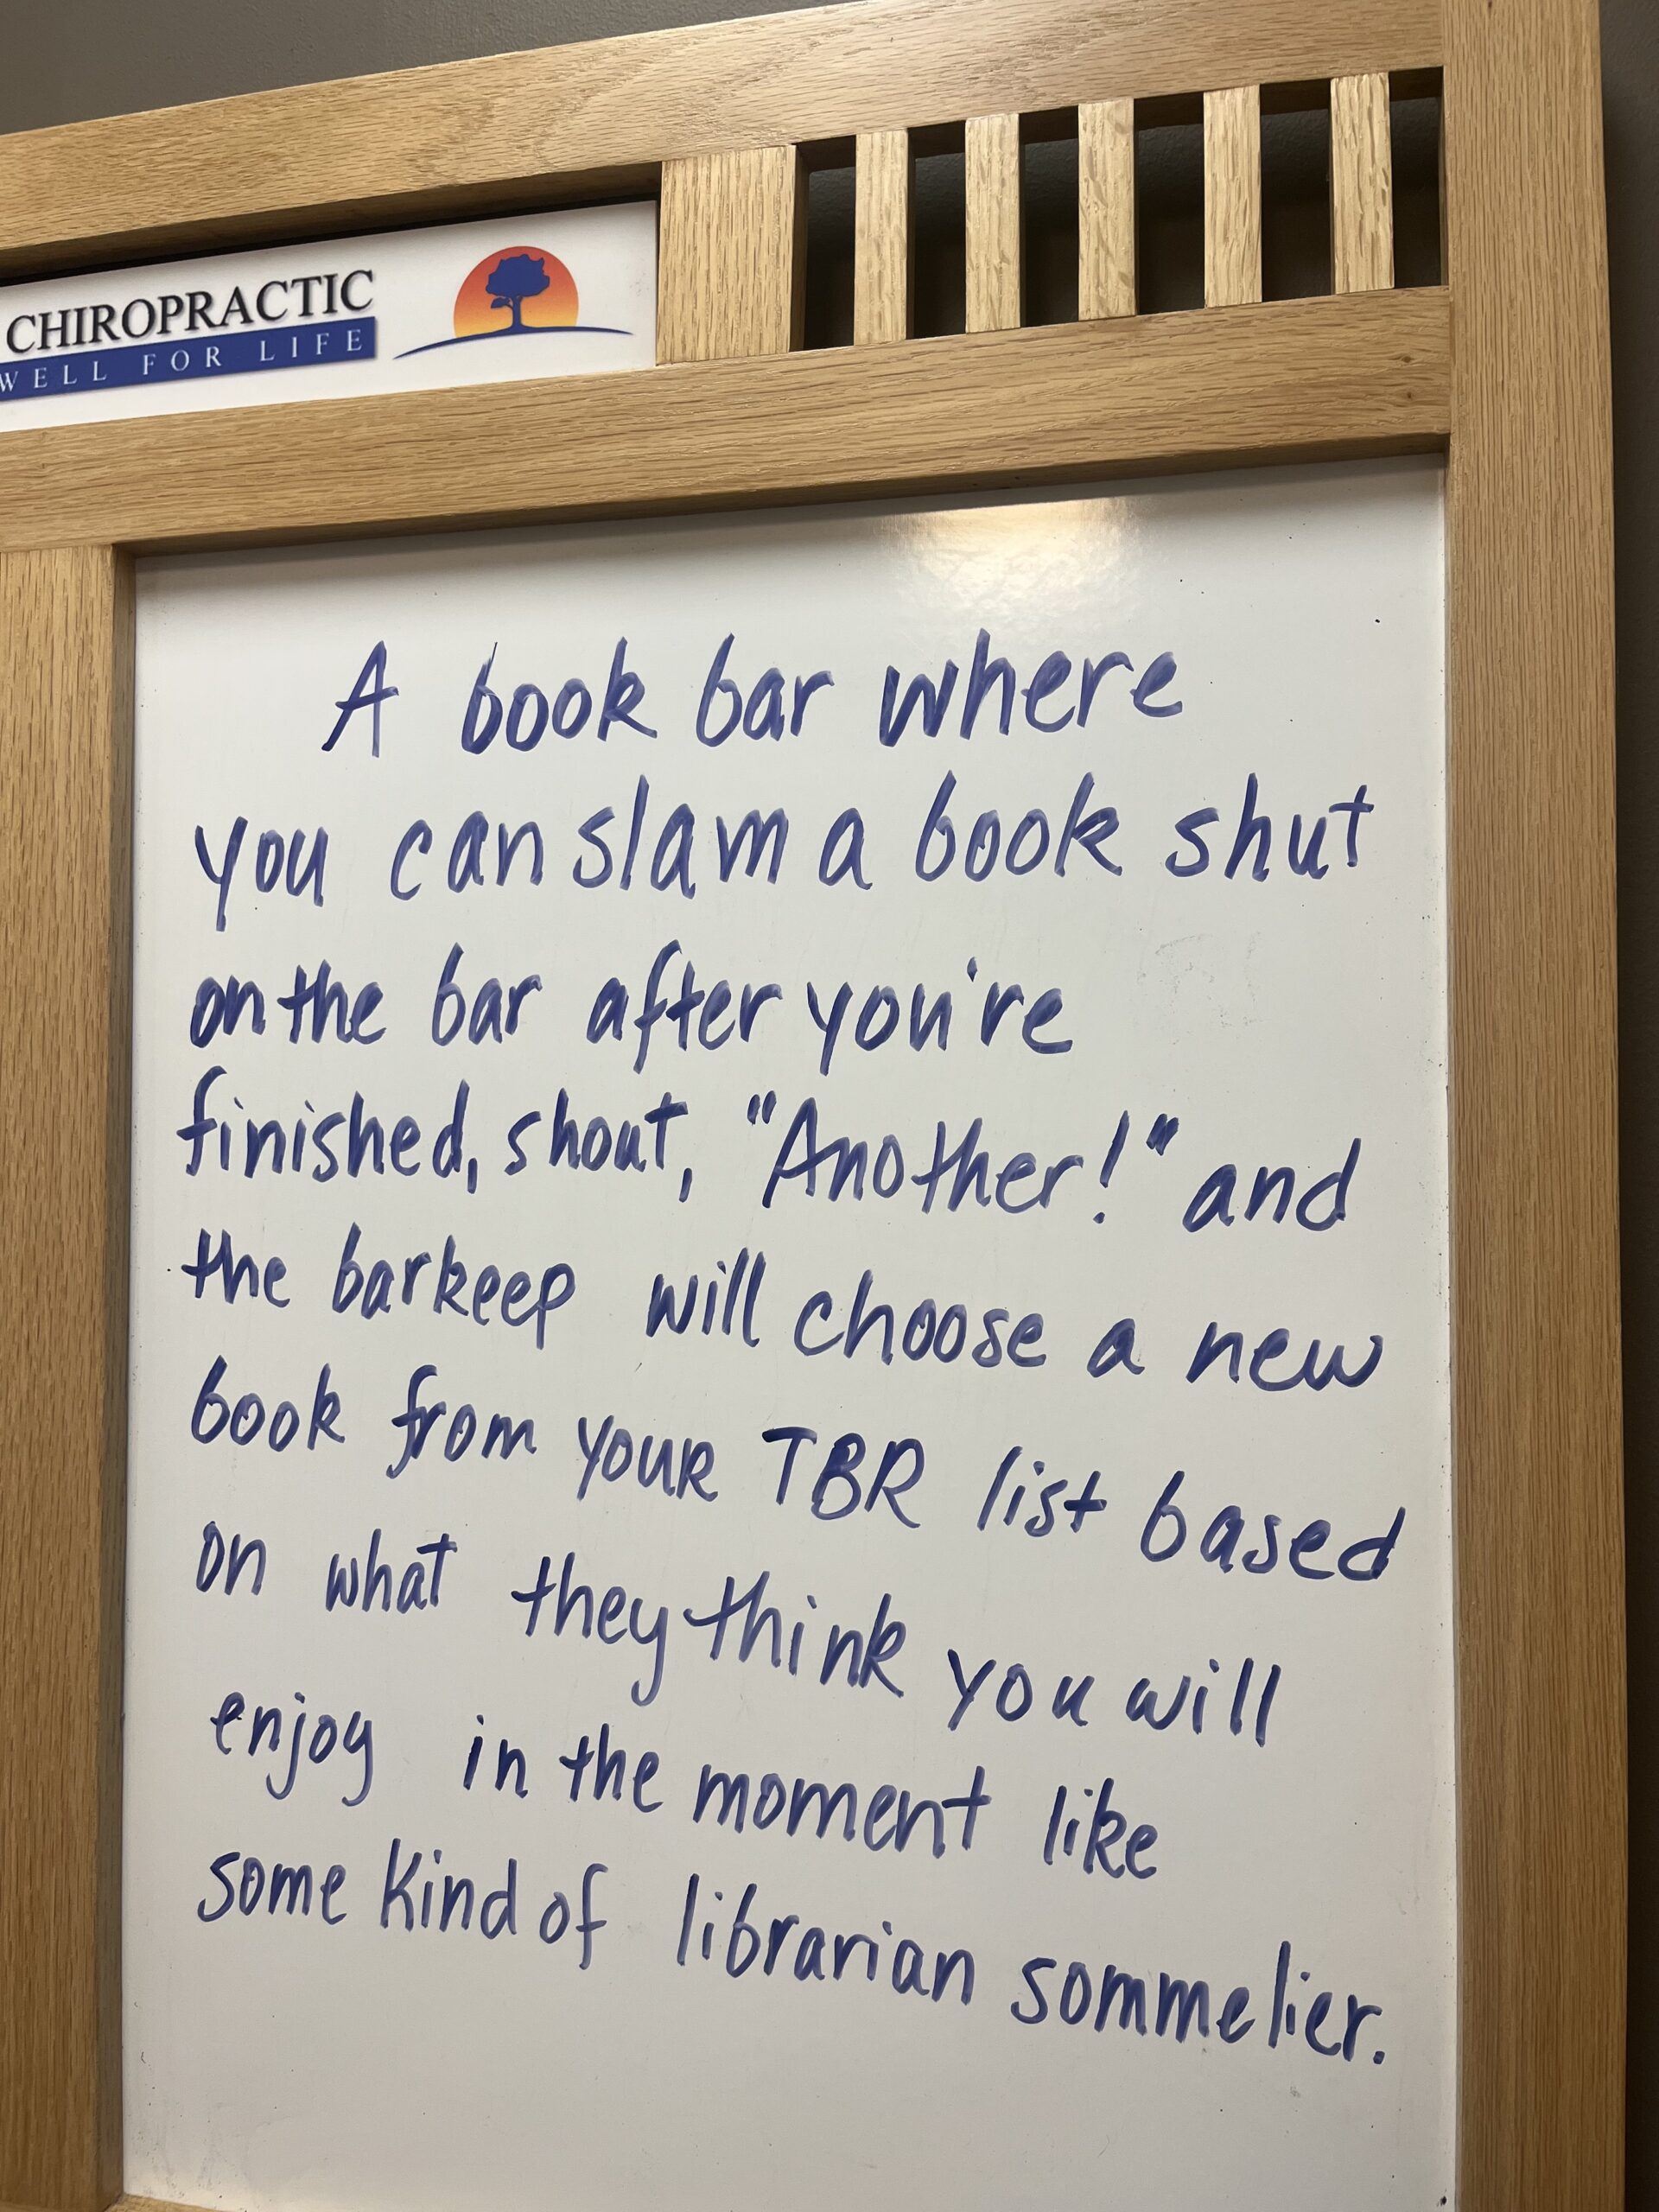 CHIROPRACTIC
WELL FOR LIFE
A book bar where
you can slam a book shut
on the bar after you're
finished, shout, "Another!" and
the barkeep will choose a new
book from your TBR list based
on what they think you will
enjoy in the moment like
some kind of librarian sommelier.